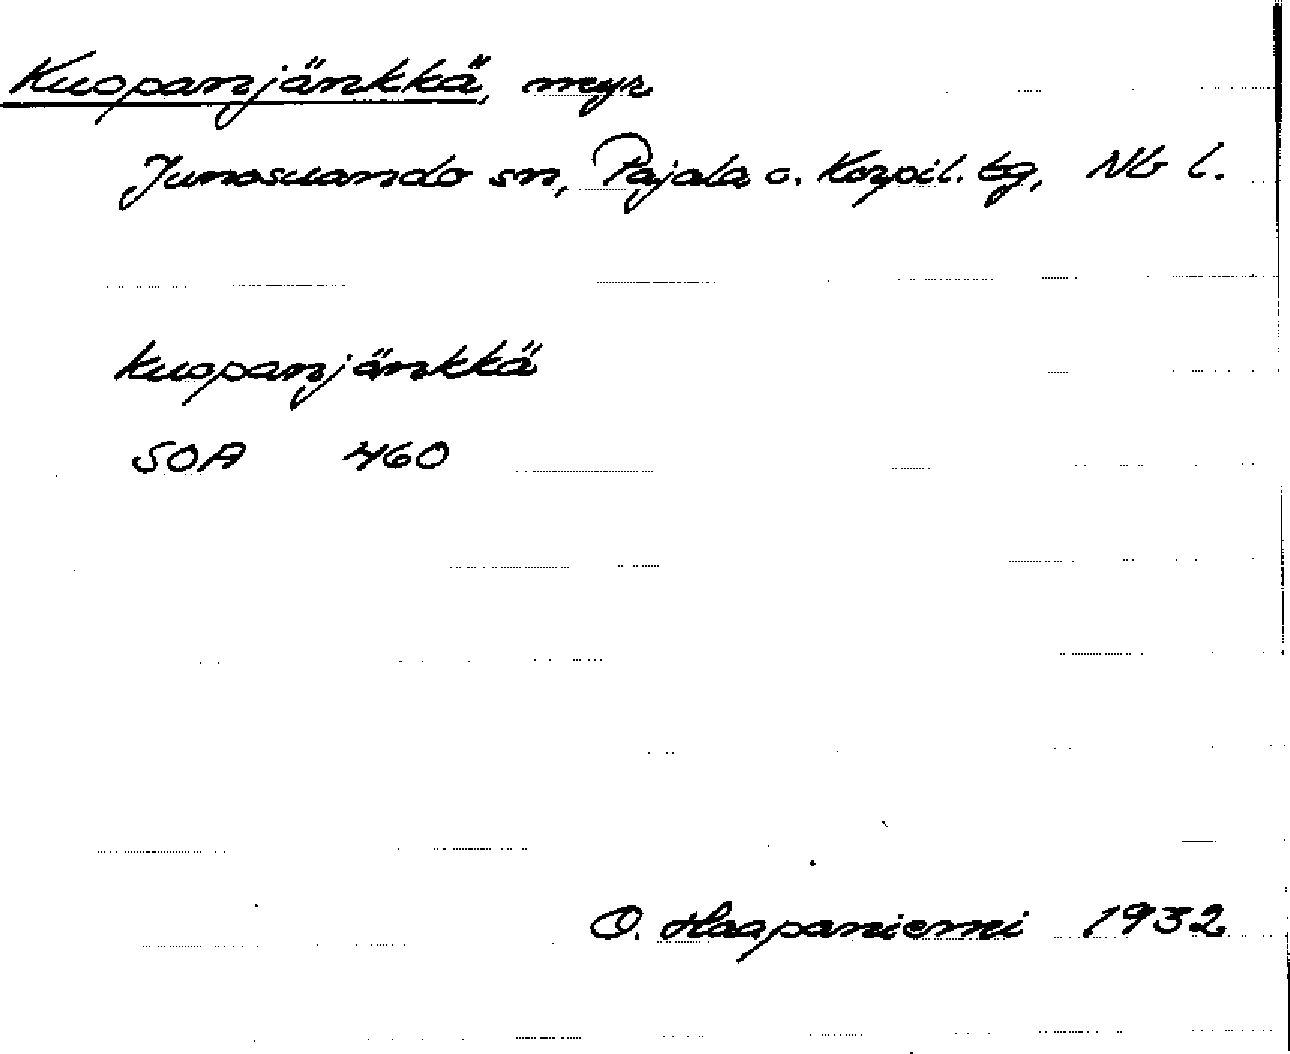 Kuopanjänkkä, myr
Junosuando sn, Pajala o. Korpil. tg, Nb l.
Kuopanjänkkä
SOA 460
O. Haapaniemi 1932